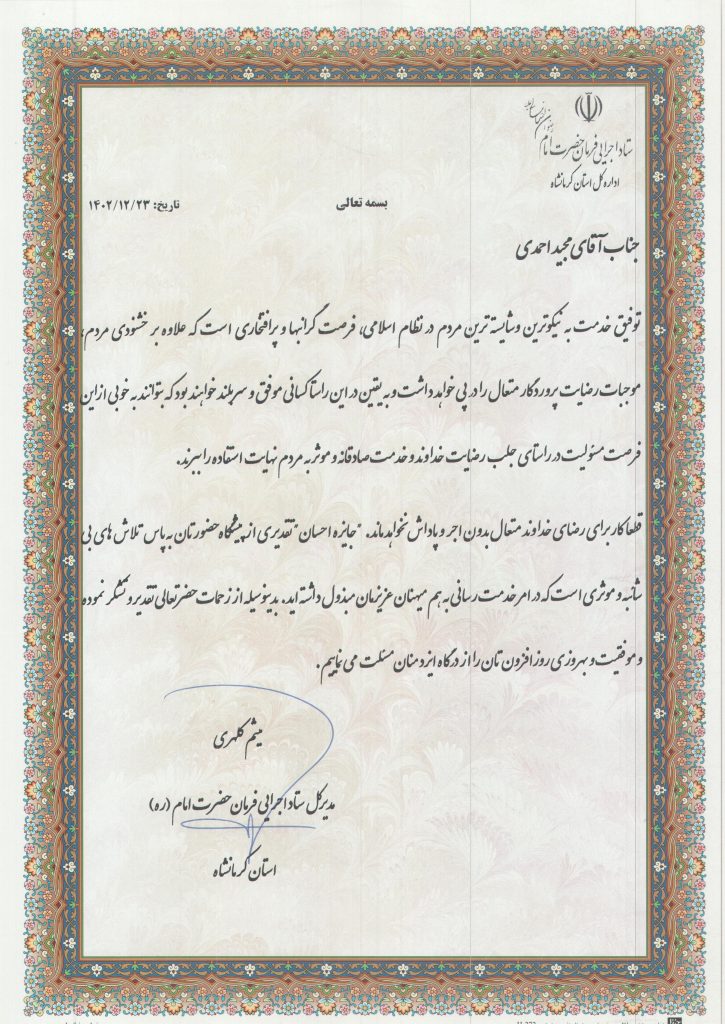 ستاد اجرایی فرمان حضرت امام
اداره کل استان کرمانشاه
بسمه تعالی
تاریخ: ۱۴۰۲/۱۲/۲۳
جناب آقای مجید احمدی
توفیق خدمت به نیکوترین و شایسته ترین مردم در نظام اسلامی، فرصت گرانبها و پرافتخاری است که علاوه بر خشنودی مردم،
موجبات رضایت پروردگار متعال را در پی خواهد داشت و به یقین در این راستا کسانی موفق و سربلند خواهند بود که بتوانند به خوبی از این
فرصت مسئولیت در راستای جلب رضایت خداوند و خدمت صادقانه و موثر به مردم نهایت استفاده را ببرند.
قطعا کار برای رضای خداوند متعال بدون اجر و پاداش نخواهد ماند. "جایزه احسان" تقدیری از پیشگاه حضورتان به پاس تلاش های بی
شائبه و موثری است که در امر خدمت رسانی به هم میهنان عزیزمان مبذول داشته اید. بدینوسیله از زحمات حضرتعالی تقدیر و تشکر نموده
و موفقیت و بهروزی روز افزون تان را از درگاه ایزد منان مسئلت می نماییم.
میثم کلهری
مدیرکل ستاد اجرایی فرمان حضرت امام (ره)
استان کرمانشاه